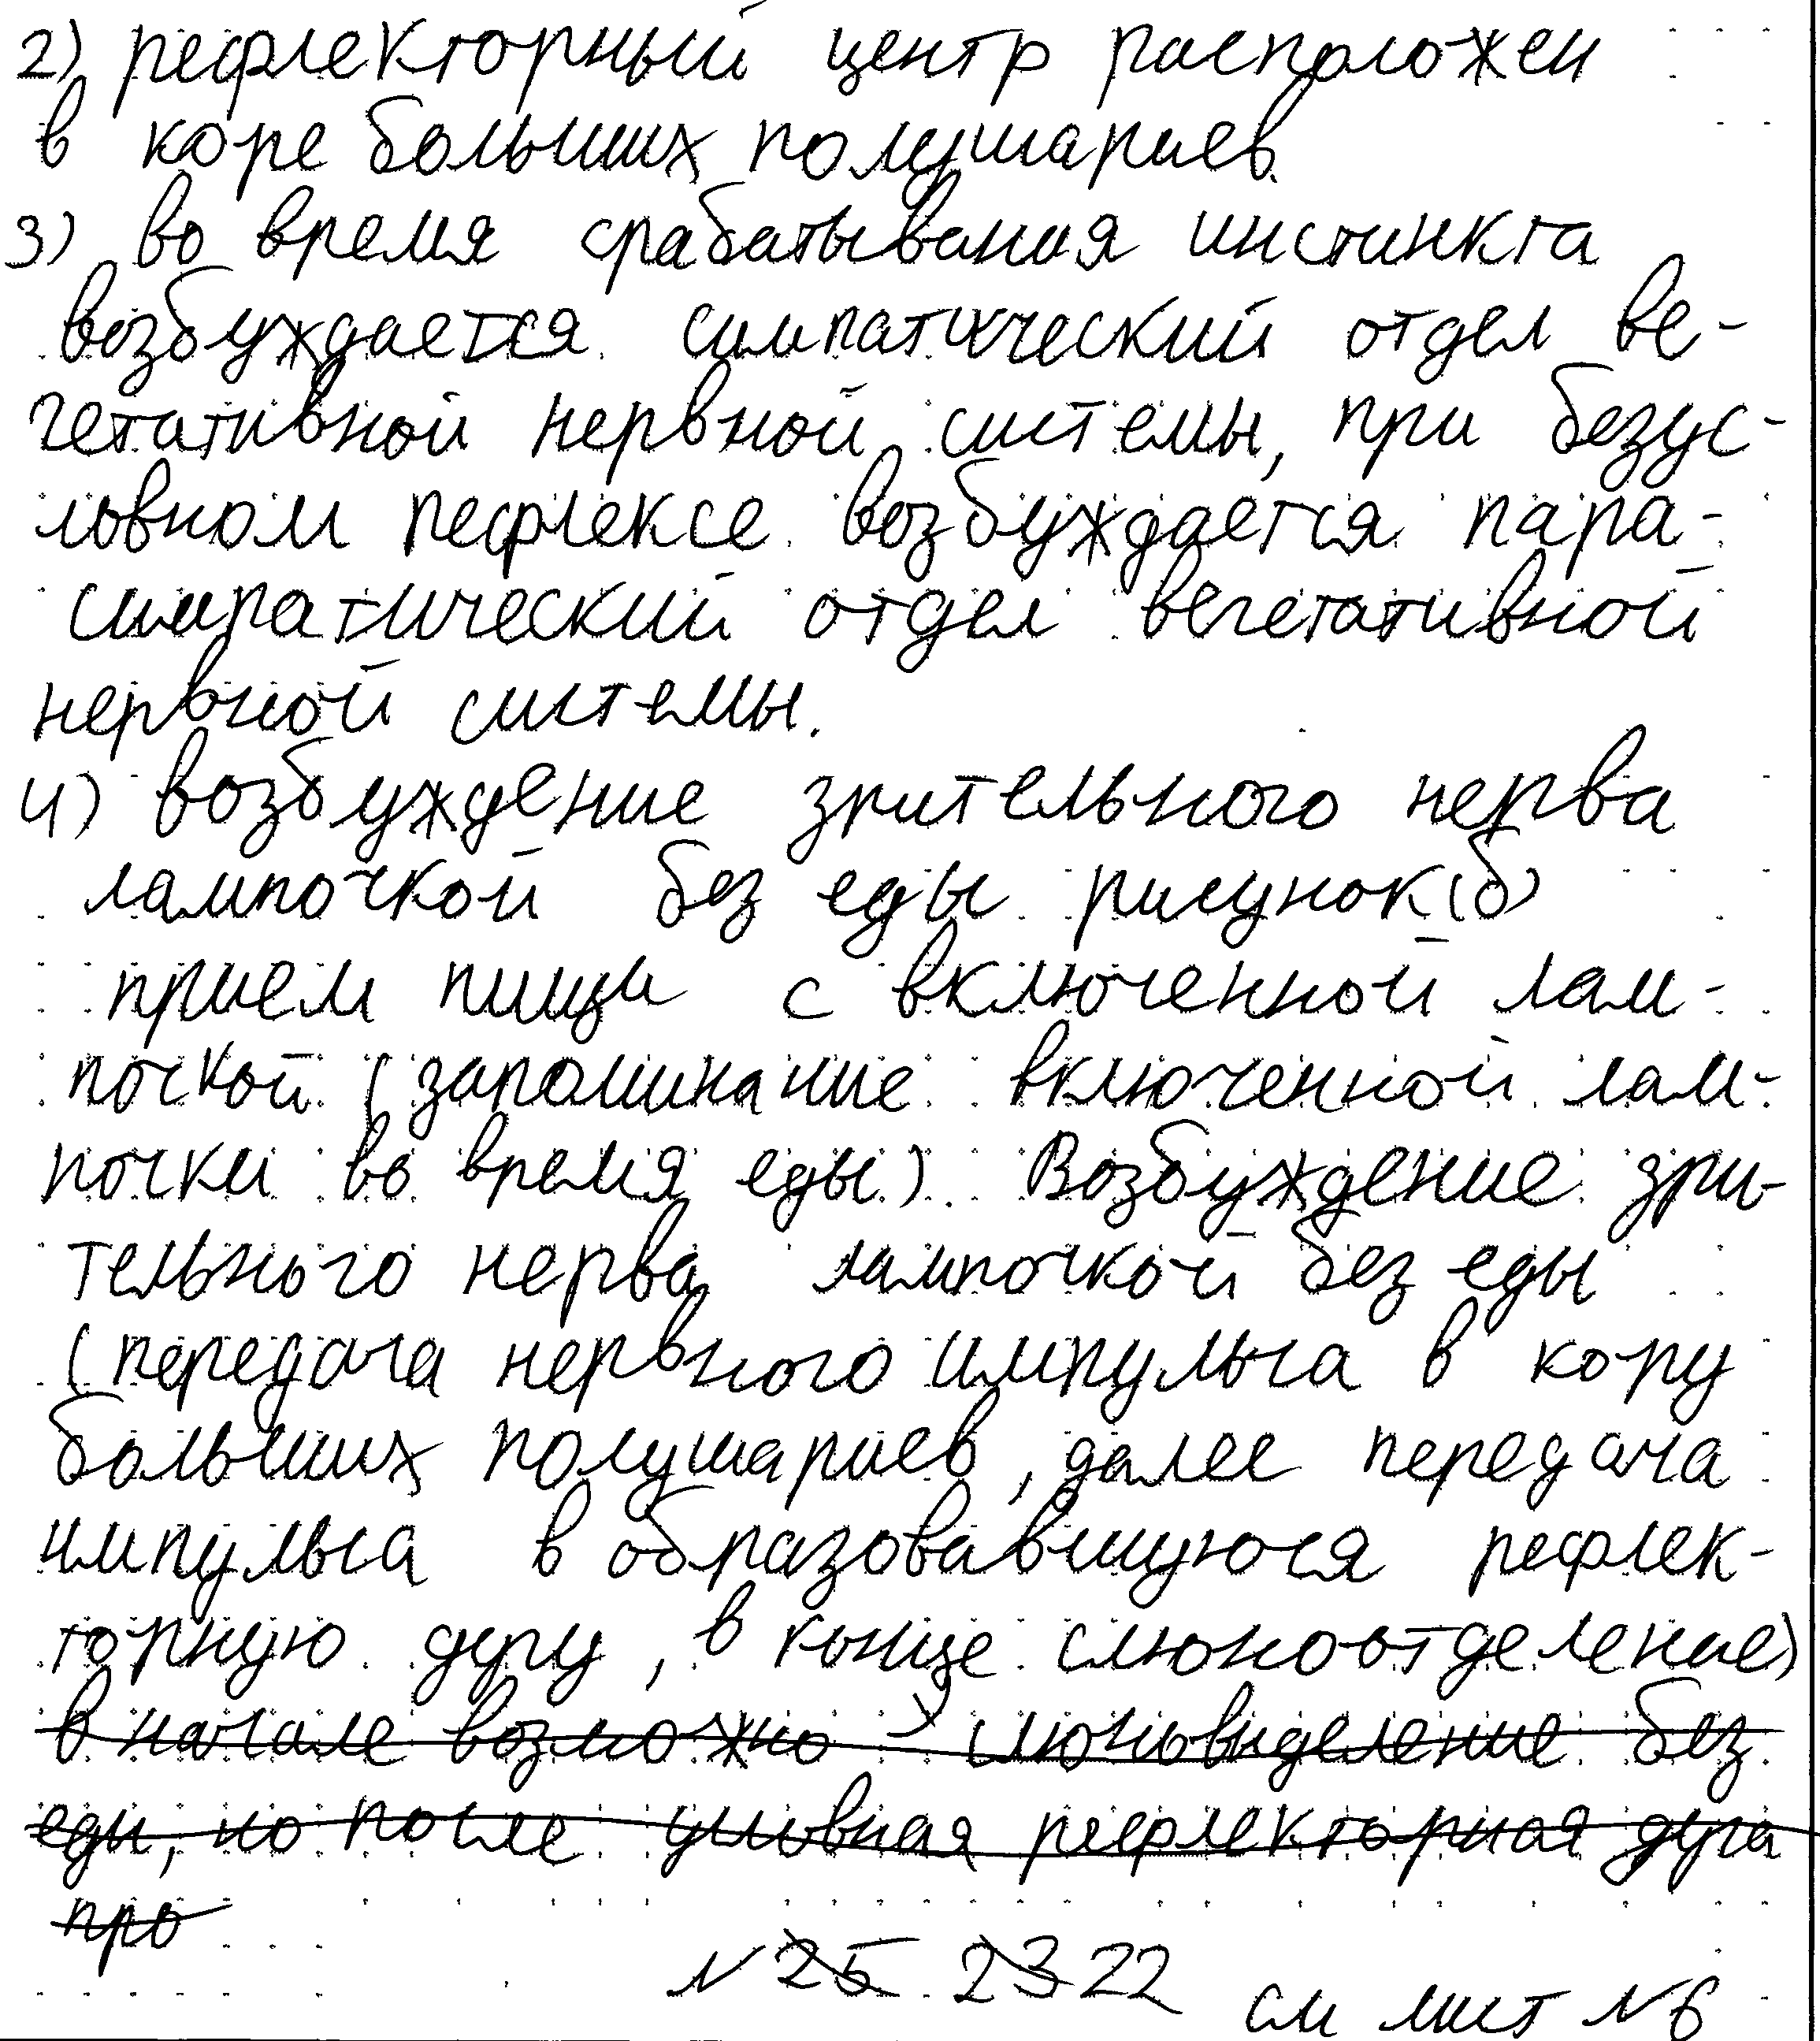 2) рефлекторный центр расположен
в коре больших полушариев.
3) во время срабатывания инстинкта
возбуждается симпатический отдел ве-
гетативной нервной системы, при безус-
ловном рефлексе возбуждается пара-
симпатический отдел вегетативной
нервной системы.
4) возбуждение зрительного нерва
лампочкой без еды рисунок (б)
прием пищи с включенной лам-
почкой (запоминание включенной лам-
почки во время еды). Возбуждение зри-
тельного нерва лампочкой без еды
(передача нервного импульса в кору
больших полушариев, далее передача
импульса в образовавшуюся рефлек-
торную дугу, в конце слюноотделение)
в начале возможно слюновыделение без
еды, но после условная рефлекторная дуга
про
№ 25 23 22
см лист №6